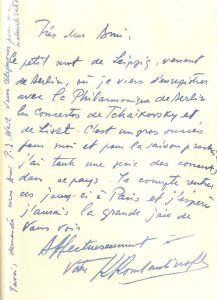 Très cher Ami,
Ce petit mot de Leipzig, venant
de Berlin, où je viens d'enregistrer
avec le Philharmonique de Berlin
les concertos de Tchaïkovsky et
de Liszt. C'est un gros succès
pour moi et pour la saison
j'ai toute une série de concerts
dans ce pays. Je compte rentrer
ces jours-ci à Paris et j'espère
j'aurais la grande joie de
Vous voir
Affectueusement à
Vous
J'avais demandé mon ami P. J. Weil Vous téléphoner pour